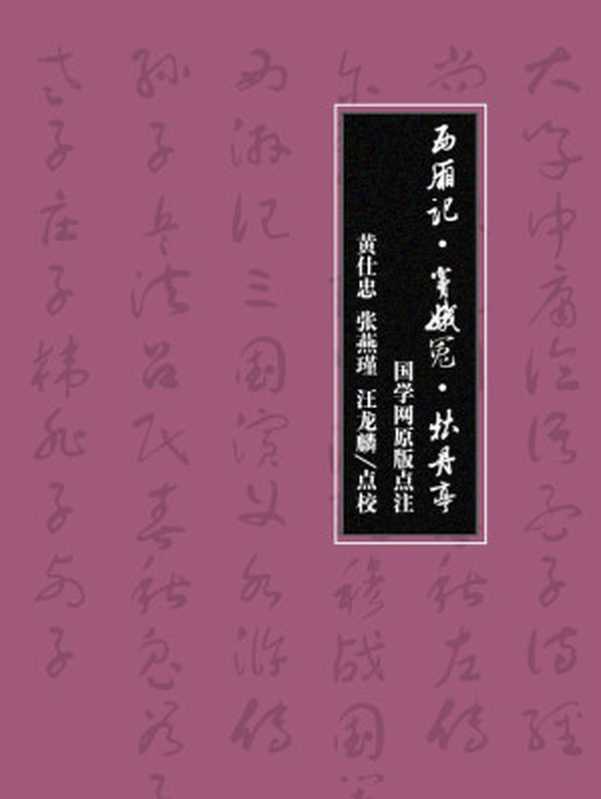 西厢记·窦娥冤·牡丹亭
国学网原版点注
黄仕忠 张燕瑾 汪龙麟/点校
大学中庸论语孟子诗经
尚
秋左传
尔
战国
西游记三国演义水浒传
孙子兵法吕氏春秋鬼谷子
老子庄子韩非子列子